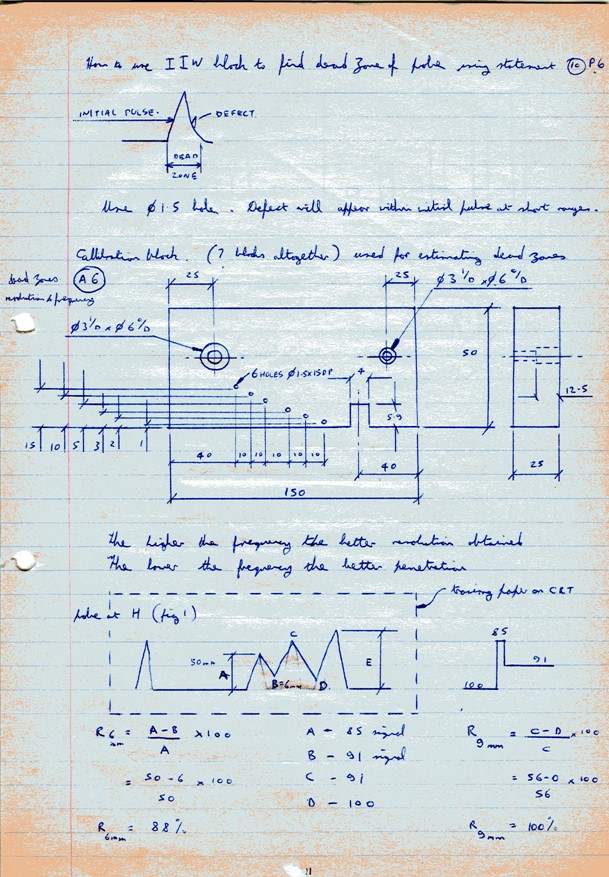 How to use IIW block to find dead zone of probe using statement 10 P.6
INITIAL PULSE.
DEFECT.
DEAD
ZONE
Use Ø1.5 hole. Defect will appear within initial pulse at short ranges.
Callibration block. (7 blocks altogether) used for estimating dead zones
dead zones
resolution & frequency
A6
25
25
Ø3 I/D x Ø6 O/D
Ø3 I/D x Ø6 O/D
50
6 HOLES Ø1.5x15DP
4
12.5
5.9
15 10 5 3 2 1
40 10 10 10 10 10
40
25
150
The higher the frequency the better resolution obtained
The lower the frequency the better penetration
tracing paper on CRT
probe at H (fig 1)
C
85
50mm
A
E
91
B=6mm
D.
100
R6mm = A-B/A x100
A - 85 signal
R9mm = C-D/C x100
B - 91 signal
= 50-6/50 x 100
C - 91
= 56-0/56 x 100
D - 100
R6mm = 88%
R9mm = 100%
11